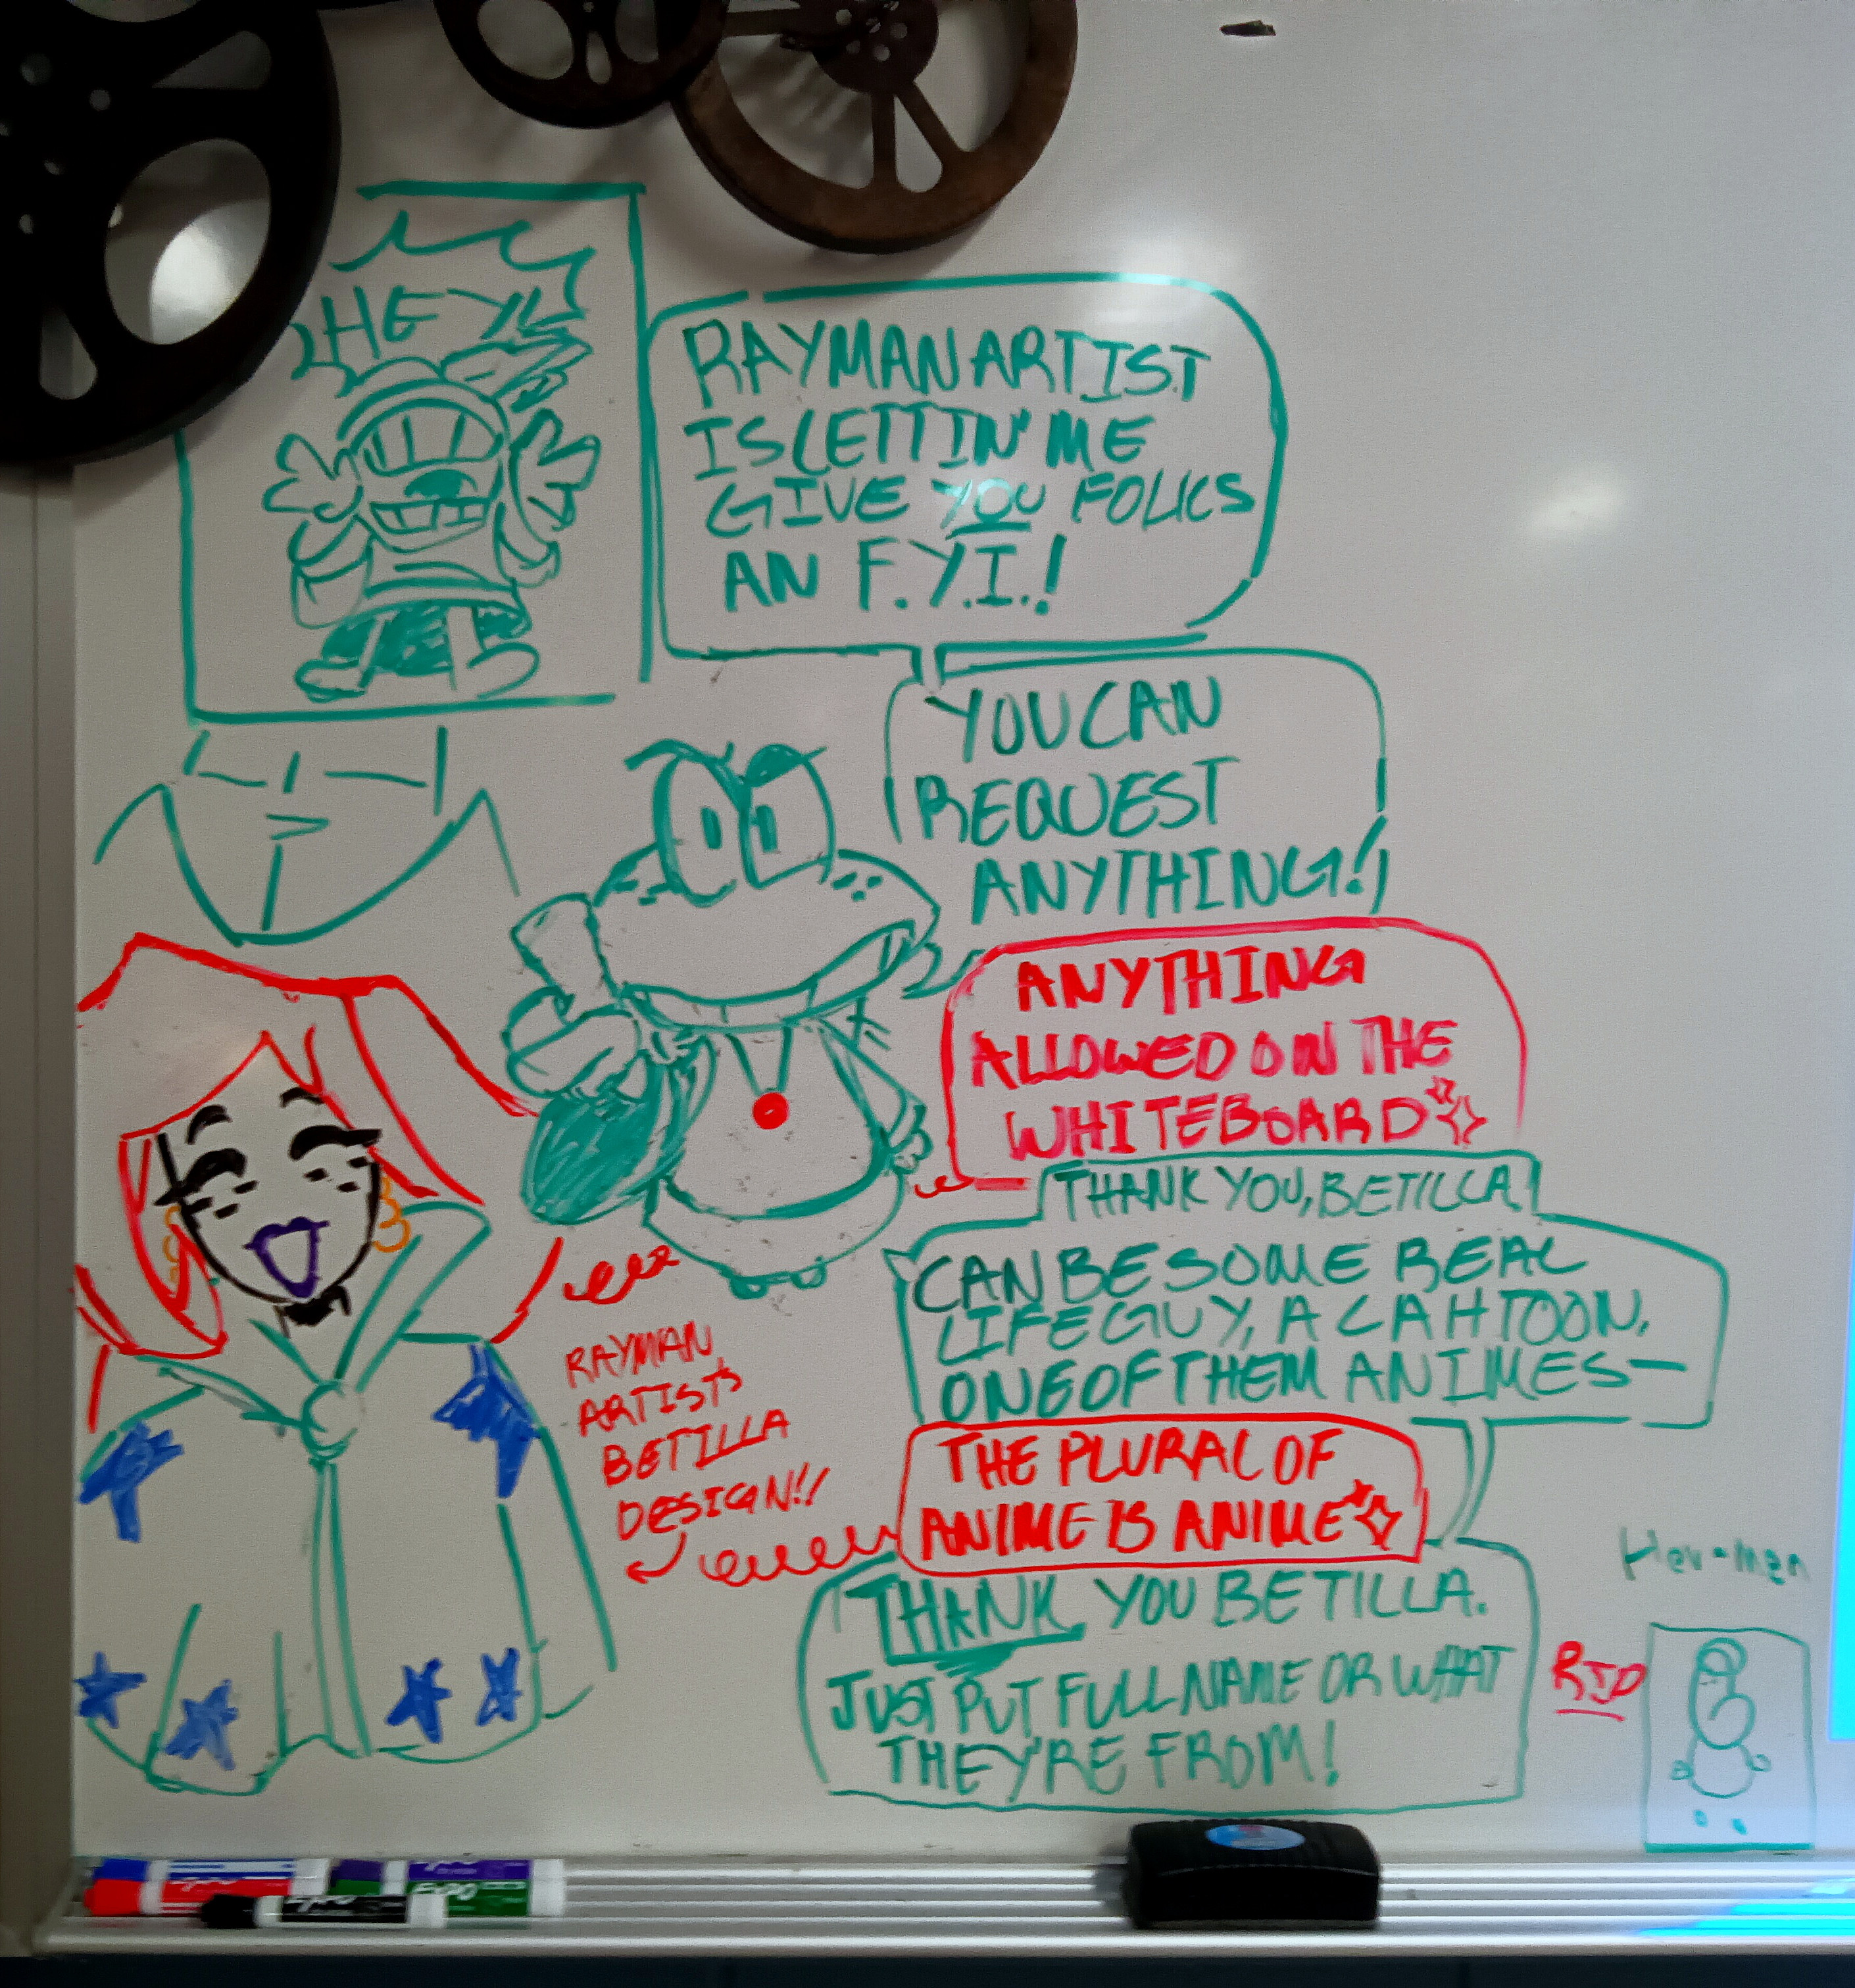 HEY
RAYMAN ARTIST
IS LETTIN' ME
GIVE YOU FOLKS
AN F.Y.I.!
YOU CAN
REQUEST
ANYTHING!
ANYTHING
ALLOWED ON THE
WHITEBOARD
THANK YOU, BETILLA.
CAN BE SOME REAL
LIFE GUY, A CAHTOON,
ONE OF THEM ANIMES—
THE PLURAL OF
ANIME IS ANIME
THANK YOU BETILLA.
JUST PUT FULL NAME OR WHAT
THEY'RE FROM!
RAYMAN
ARTIST'S
BETILLA
DESIGN!!
RJD
EXPO
EXPO